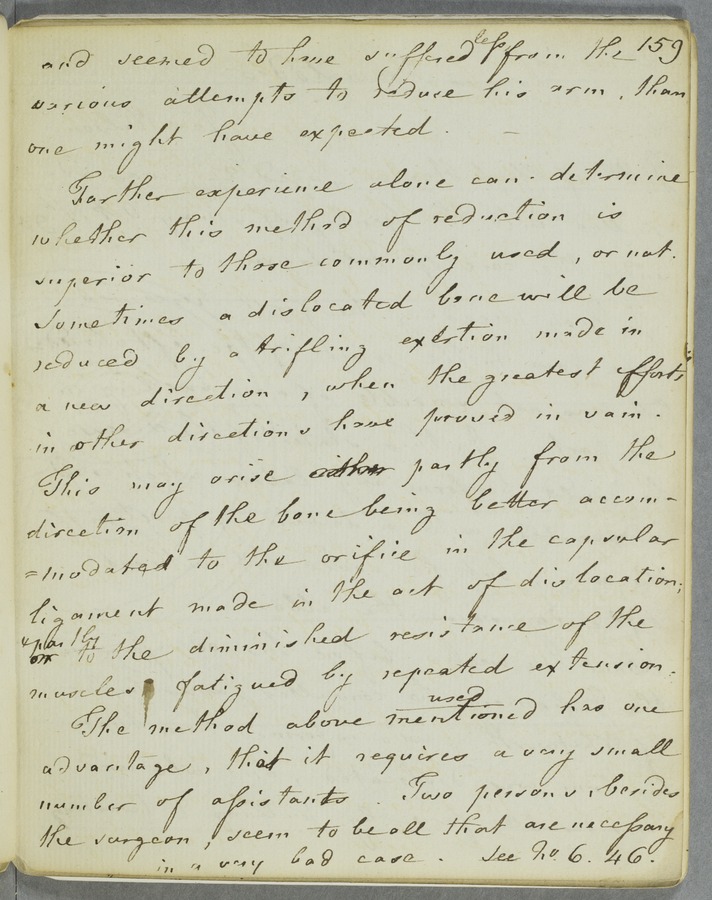 159
and seemed to have suffered less from the
various attempts to reduce his arm, than
one might have expected. —
Farther experience alone can determine
whether this method of reduction is
superior to those commonly used, or not.
Sometimes a dislocated bone will be
reduced by a trifling exertion made in
a new direction, when the greatest efforts
in other directions have proved in vain.
This may arise either partly from the
direction of the bone being better accom-
=modated to the orifice in the capsular
ligament made in the act of dislocation;
& partly
or to the diminished resistance of the
muscles, fatigued by repeated extension.
used
The method above mentioned has one
advantage, that it requires a very small
number of assistants. Two persons, besides
the surgeon, seem to be all that are necessary
in a very bad case. See No. 6. 46.